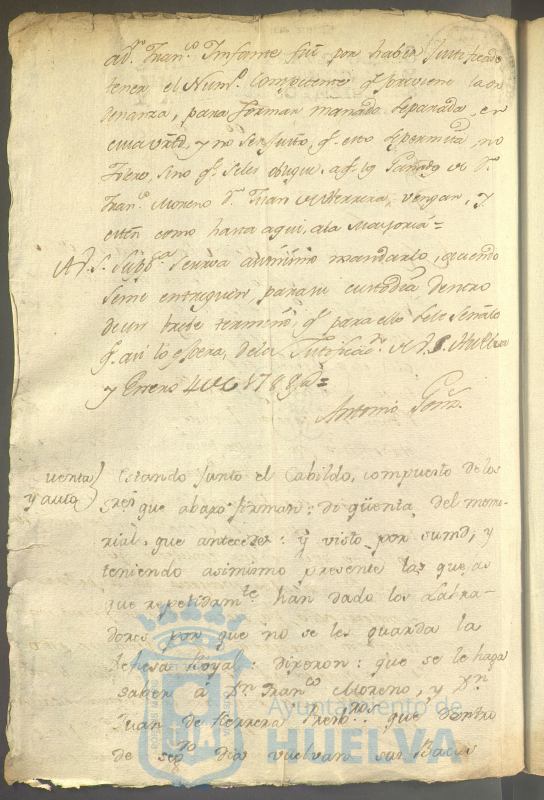 a D.ⁿ Fran.co Infante fue por haber justificado
tener el Num.º competente q.e previene la or
denanza, para formar manada separada, en
cuia virtd. y no ser justo, q.e esto se permita, no
fuero, sino q.e se les obligue, a q.e el Ganado de D.n
Fran.co Moreno D.n Juan de Herrera, vengan, y
esten como hasta aqui, a la Mayoria =
A V.S. Supp.ca se sirva asimismo mandarlo, queriendo
se me entreguen para su custodia dentro
de un breve termino, q.e para ello se le señale
q.e asi lo espera, de la Justificac.n de V.S. Huelva
y Enero 4 de 1788 a.s =
Antonio Gonz.
uenta
y auto
Estando junto el Cabildo, compuesto de los
Sres que abaxo firman: di qüenta del memo-
rial, que antecede: y visto por sumd; y
teniendo asimismo presente las quejas
que repetidam.te han dado los Labra-
dores por que no se les guarda la
Dehesa Boyal: dixeron: que se le haga
saber a D.n Fran.co Moreno, y D.n
Juan de Herrera Presvros que dentro
de seg.do dia vuelvan sus Bacas
Ayuntamiento de
HUELVA